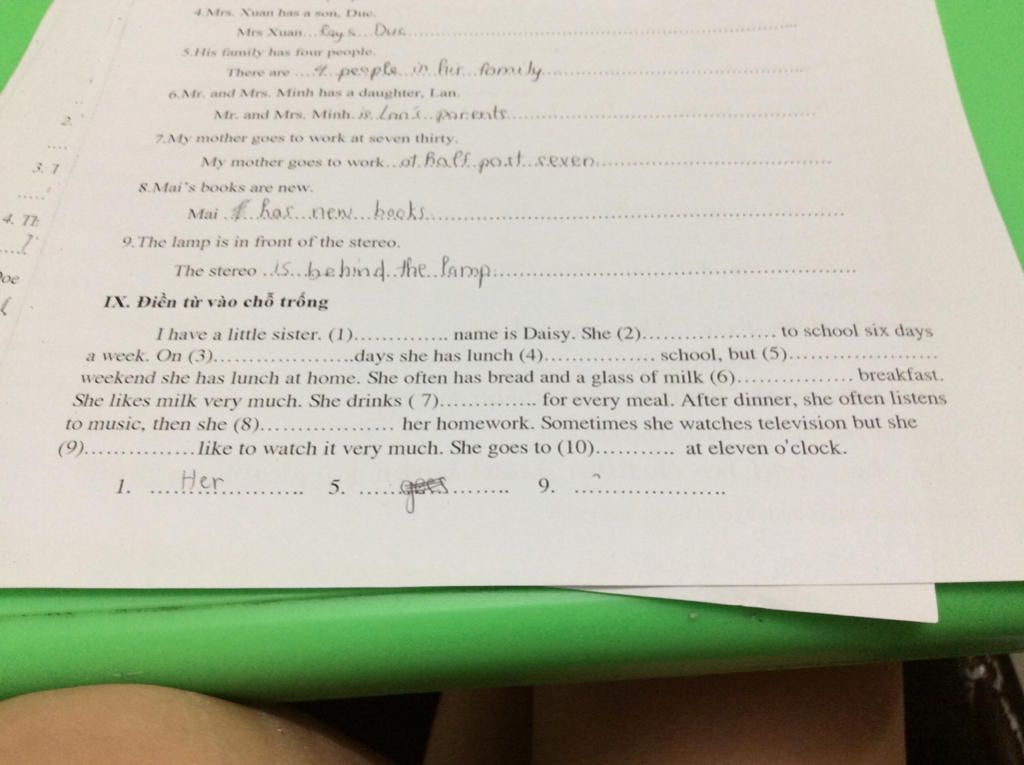 4.Mrs. Xuan has a son, Duc.
Mrs Xuan... ...Duc...............
5.His family has four people.
There are ....4..people...in..his..family...............
6.Mr. and Mrs. Minh has a daughter, Lan.
2.
Mr. and Mrs. Minh.is.Lan's..parents...............
7.My mother goes to work at seven thirty.
3.
My mother goes to work...at.half..past..seven...............
8.Mai's books are new.
4. Th
Mai ....has...new...books...............
9.The lamp is in front of the stereo.
The stereo ..is..behind..the..lamp...............
IX. Điền từ vào chỗ trống
I have a little sister. (1).............. name is Daisy. She (2).................. to school six days
a week. On (3)...................days she has lunch (4)............... school, but (5)....................
weekend she has lunch at home. She often has bread and a glass of milk (6)................ breakfast.
She likes milk very much. She drinks ( 7)............. for every meal. After dinner, she often listens
to music, then she (8).................. her homework. Sometimes she watches television but she
(9)...............like to watch it very much. She goes to (10)........... at eleven o'clock.
1. ....Her............ 5. .....goes........ 9. .....................